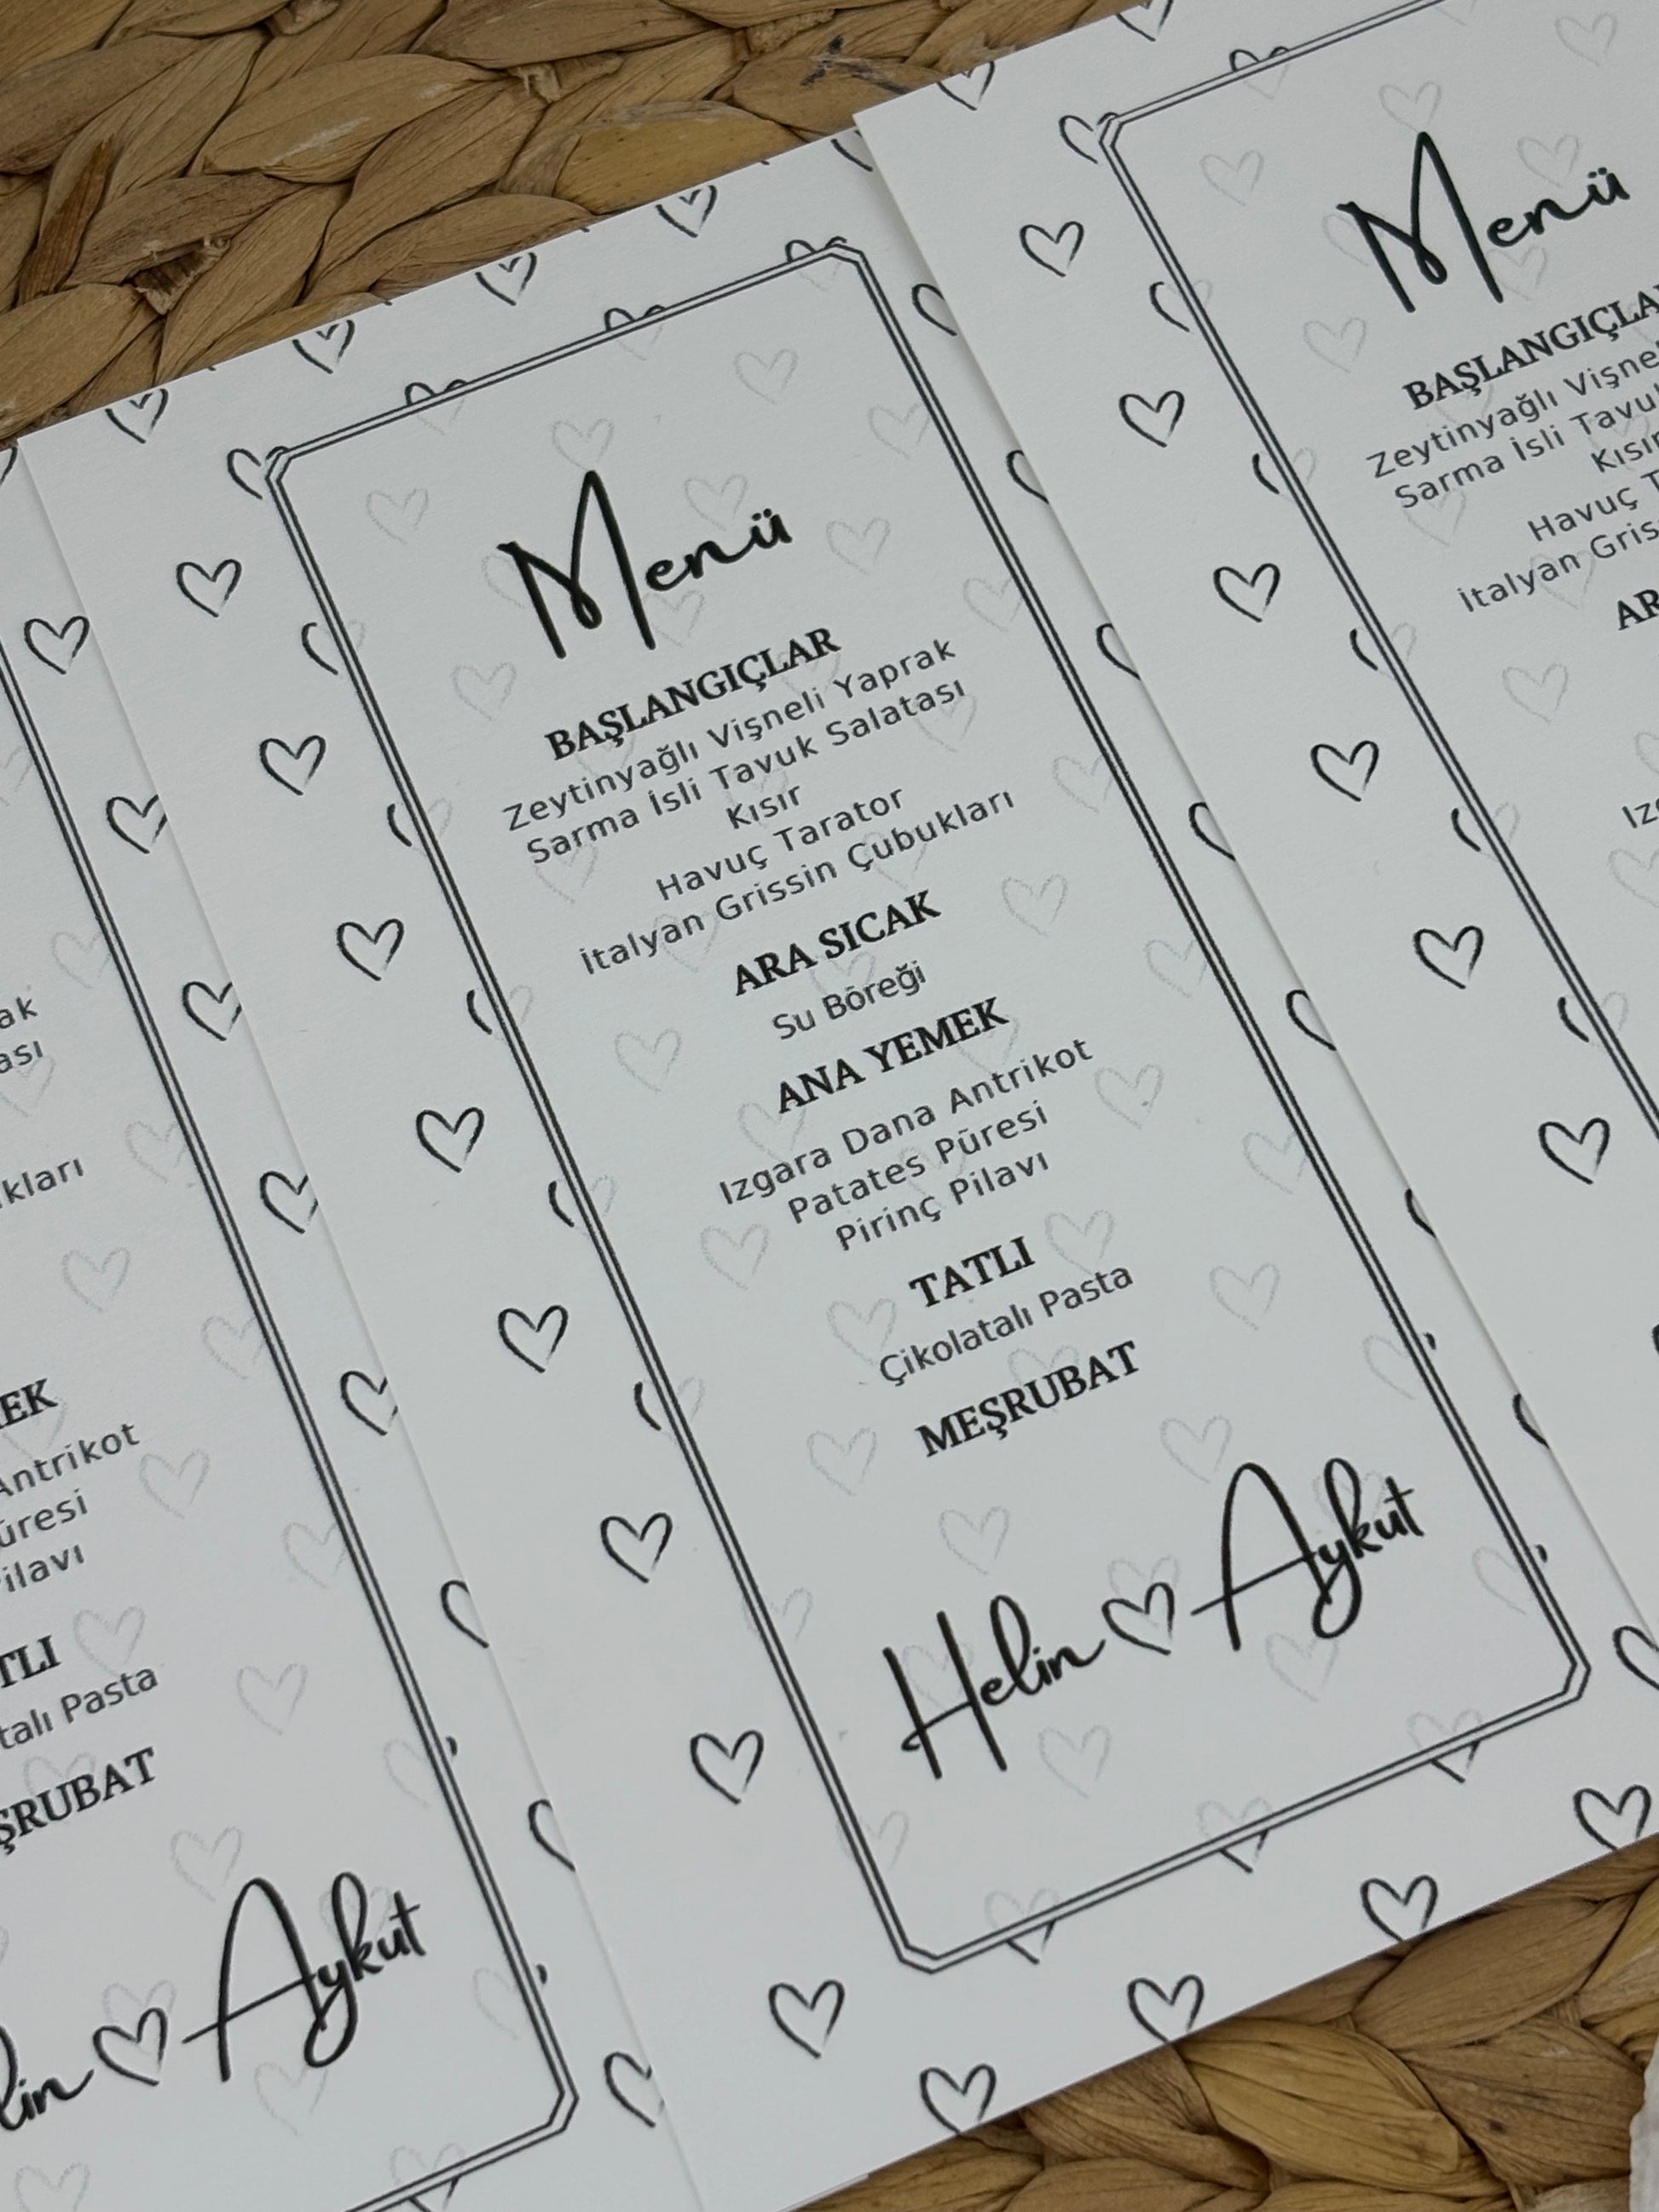 Menü
BAŞLANGIÇLAR
Zeytinyağlı Vişneli Yaprak
Sarma İsli Tavuk Salatası
Kısır
Havuç Tarator
İtalyan Grissin Çubukları
ARA SICAK
Su Böreği
ANA YEMEK
Izgara Dana Antrikot
Patates Püresi
Pirinç Pilavı
TATLI
Çikolatalı Pasta
MEŞRUBAT
Helin Aykut
Menü
BAŞLANGIÇLA
Zeytinyağlı Vişne
Sarma İsli Tavu
Kısır
Havuç T
İtalyan Gris
AR
Izg
ak
ası
kları
EK
Antrikot
üresi
ilavı
TLI
talı Pasta
ŞRUBAT
lin Aykut